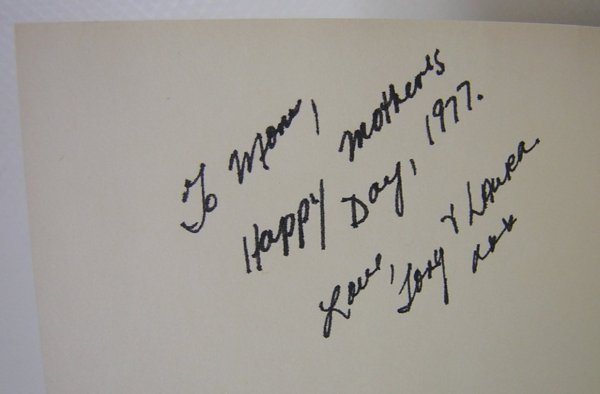 To Mom,
Happy Mother's
Day, 1977.
Love,
Tony & Laura.
xxx